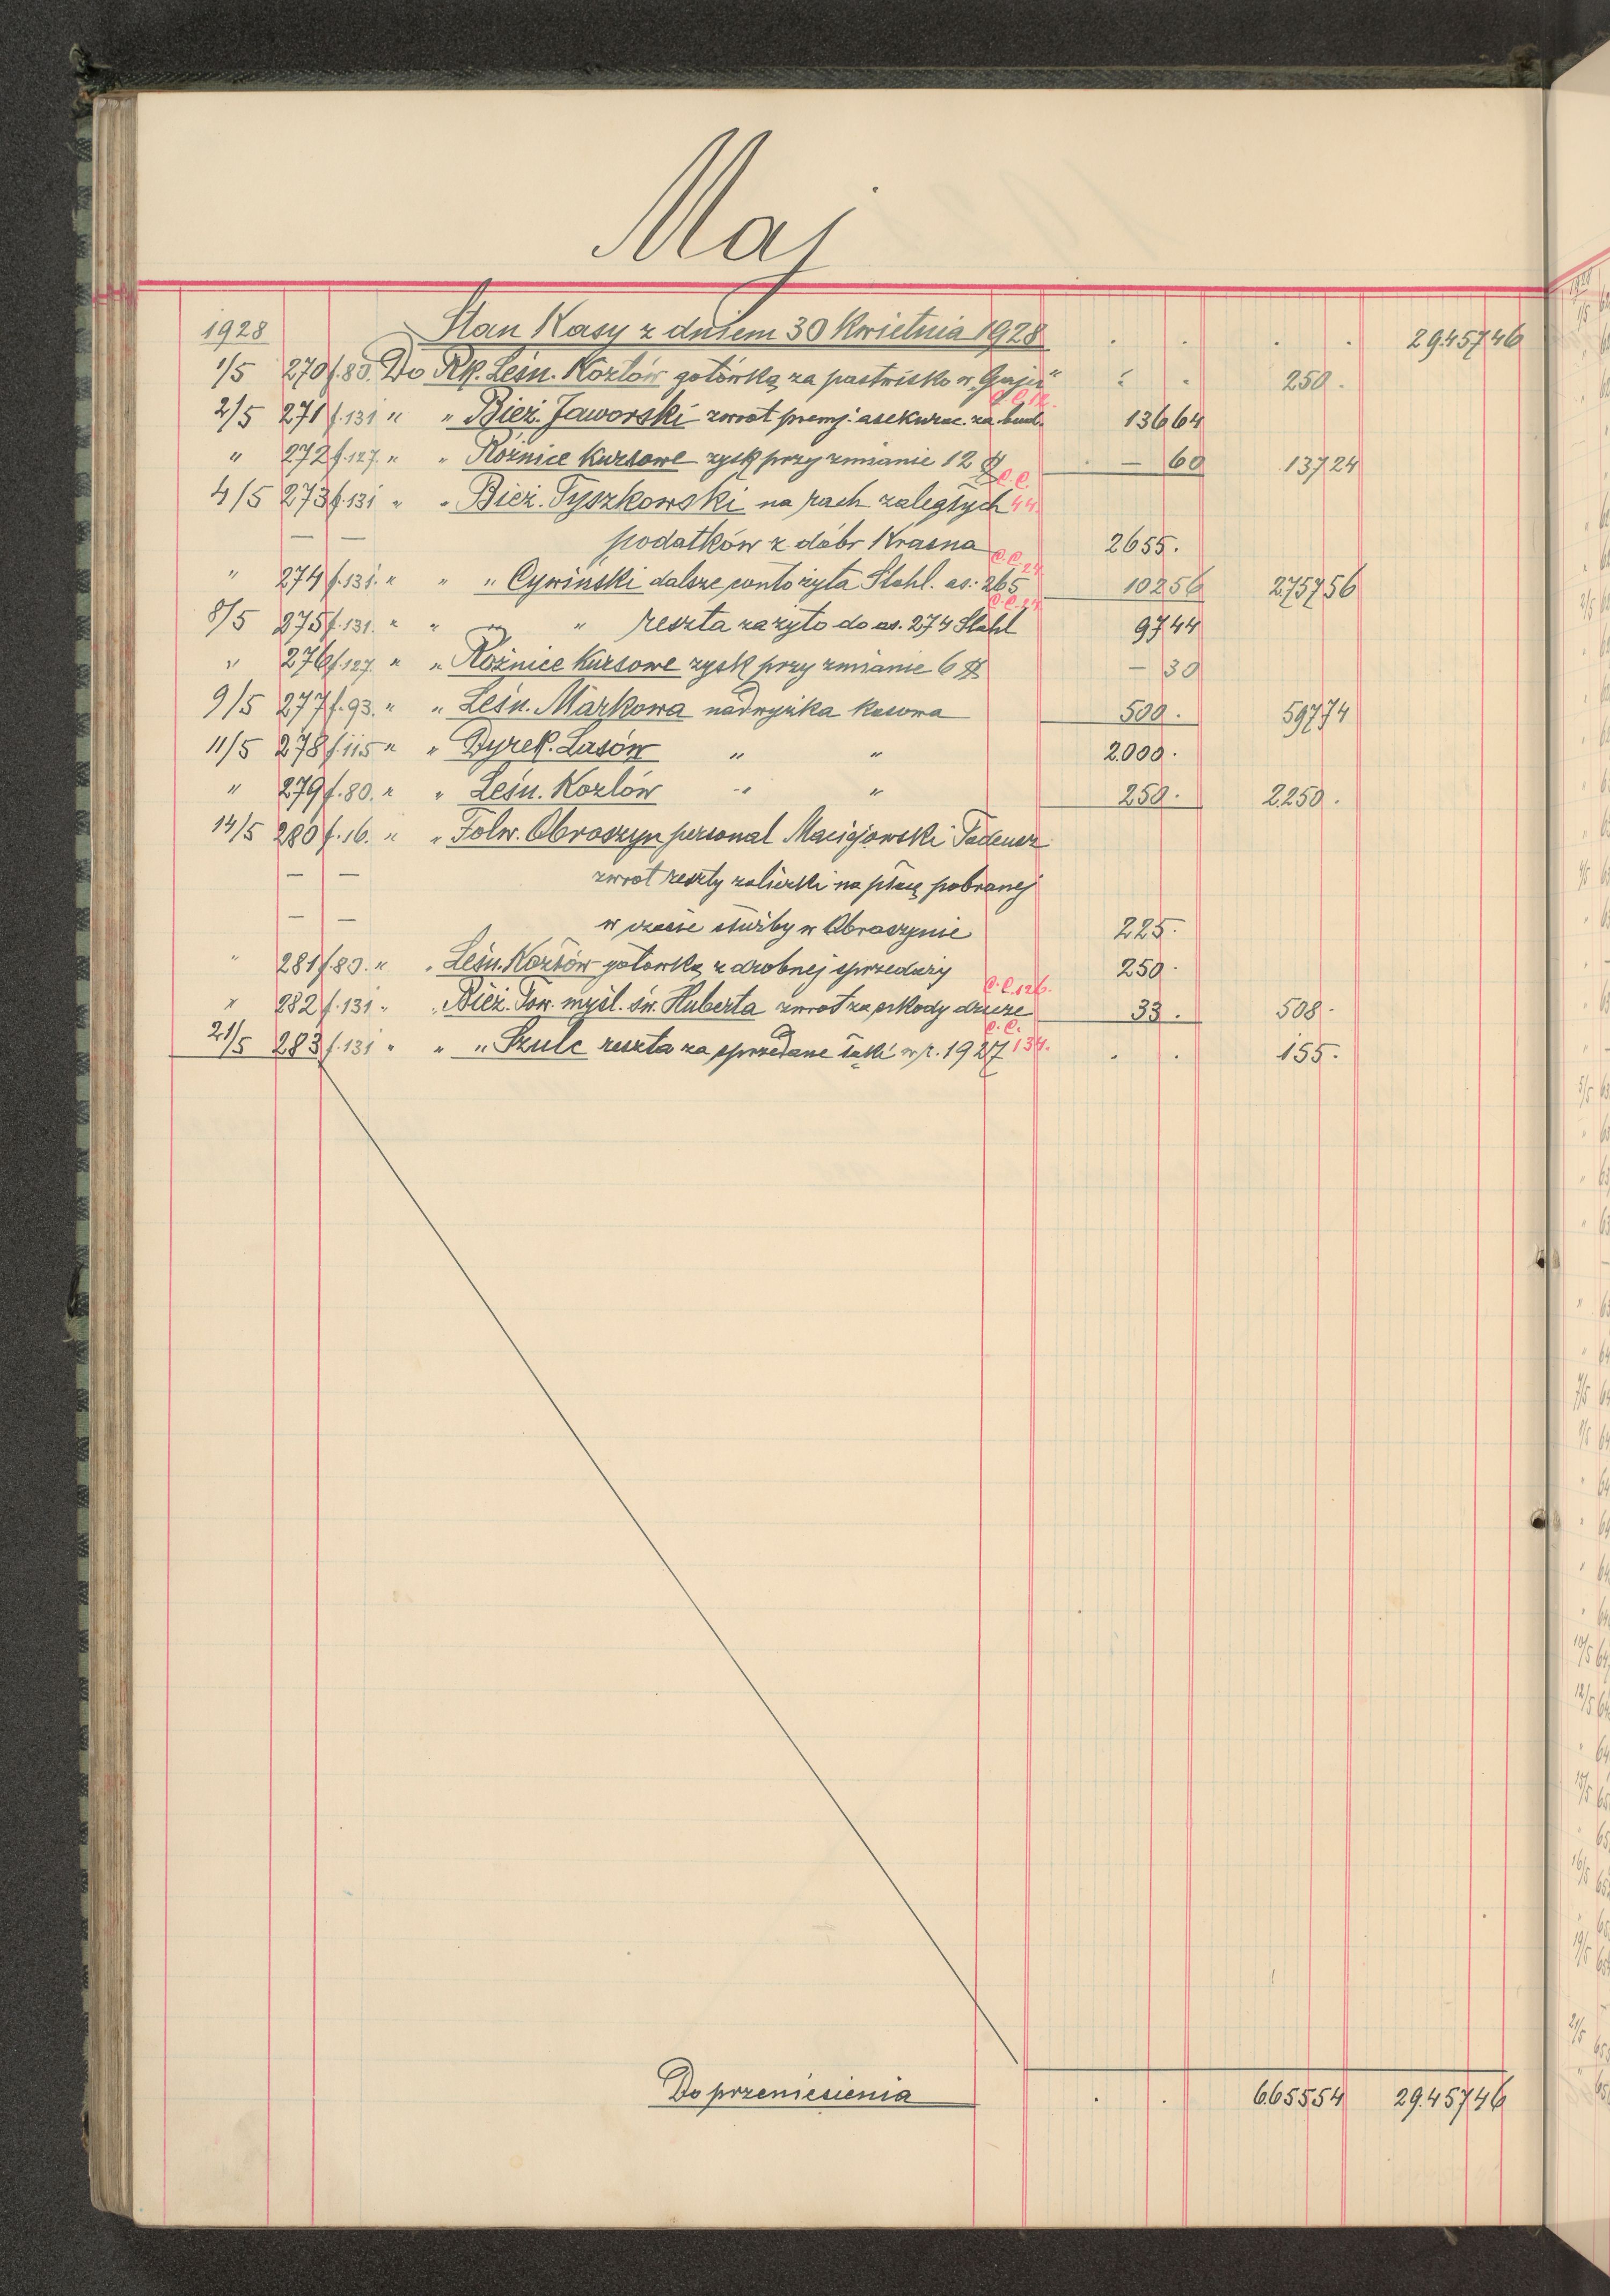 Maj
1928 Stan Kasy z dniem 30 Kwietnia 1928 . . . . 29.457 46
1/5 270 f. 80. Do Rk. Leśn. Kozłów gotówką za pastwisko w „Gaju" . . 250 .
2/5 271 f. 131 " " Bież. Jaworski zwrot premj. asekurac. za bud. C.C. 136 64
" 272 f. 127. " " Różnice kursowe zysk przy zmianie 12 $ — 60 137 24
4/5 273 f. 131 " " Bież. Tyszkowski na rach zaległych C.C. 44.
— — podatków z dóbr Krasna 2655 .
" 274 f. 131. " " " Cywiński dalsze conto żyta Stahl. as: 265 C.C. 24 102 56 2.757 56
8/5 275 f. 131. " " " " reszta za żyto do as. 274 Stahl C.C. 24 97 44
" 276 f. 127. " " Różnice Kursowe zysk przy zmianie 6 $ — 30
9/5 277 f. 93. " " Leśn. Markowa nadwyżka kasowa 500 . 597 74
11/5 278 f. 115 " " Dyrek. Lasów " " 2.000 .
" 279 f. 80. " " Leśn. Kozłów " " 250 . 2.250 .
14/5 280 f. 16. " " Folw. Obroszyn personal Maciejowski Tadeusz
— — zwrot reszty zaliczki na płacę pobranej
— — w czasie służby w Obroszynie 225 .
" 281 f. 80. " " Leśn. Kozłów gotówką z drobnej sprzedaży 250 .
" 282 f. 131 " " Bież. Tow. myśl. św. Huberta zwrot za szkody dzicze C.C. 126. 33 . 508 .
21/5 283 f. 131 " " " Szulc reszta za sprzedane łąki w r. 1927 C.C. 134. . . 155 .
Do przeniesienia . . 6.655 54 29.457 46